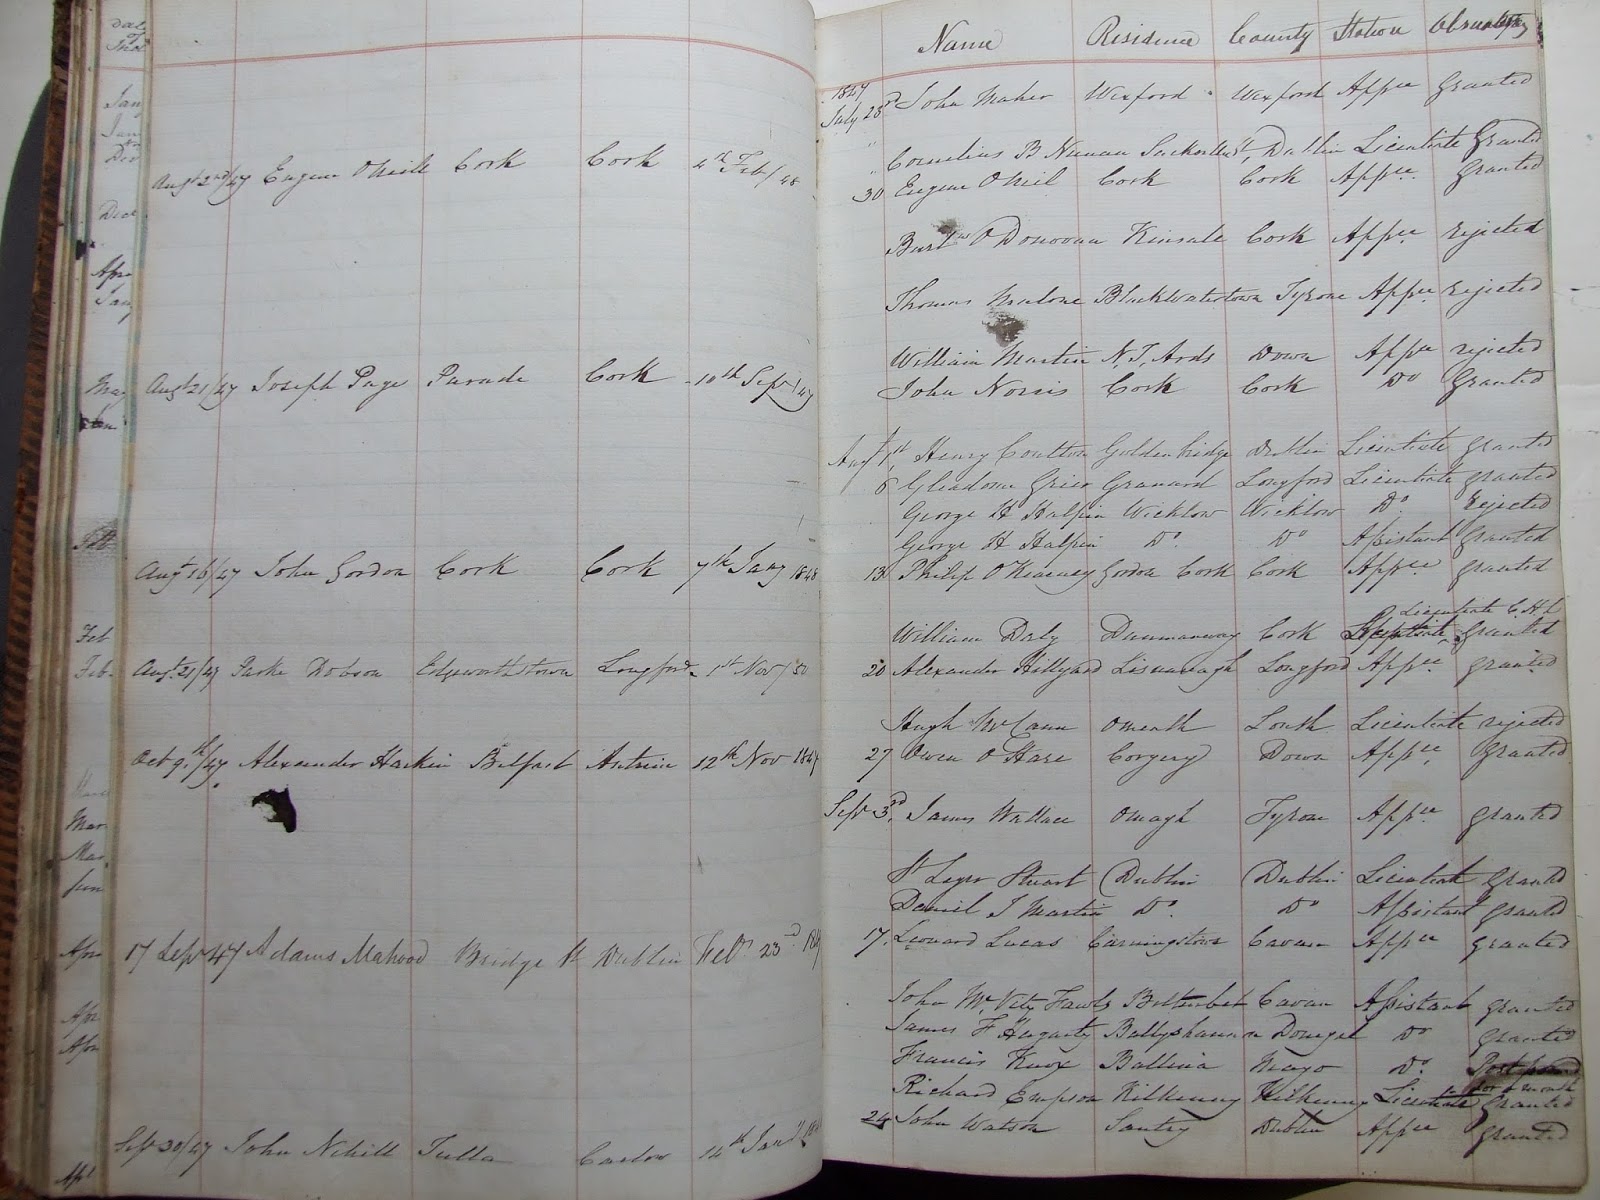 Augt 2nd/47 Eugene O'Neill Cork Cork 4th Feb/48
Augt 21/47 Joseph Page Parade Cork 10th Sepr/47
Augt 16/47 John Gordon Cork Cork 7th Jany 1848
Augt 21/47 Parke Dobson Edgeworthstown Longford 1st Nov/50
Oct 9th/47 Alexander Harkin Belfast Antrim 12th Nov 1847
17 Sepr 47 Adams Mahood Bridge St Dublin Feby 23d
Sepr 30/47 John Nihill Tulla 14th Jany
Name Residence County Station
1847
July 23d John Maher Wexford Wexford Appce Granted
" Cornelius B Nunan Sackville St, Dublin Licentiate Granted
30 Eugene O'Neil Cork Cork Appce Granted
Bartw O'Donovan Kinsale Cork Appce rejected
Thomas Malone Blackwatertown Tyrone Appce rejected
William Martin N.T. Ards Down Appce rejected
John Norris Cork Cork Do Granted
Augt 1st, Henry Coulton Goldenbridge Dublin Licentiate granted
6 Gleadowe Grier Granard Longford Licentiate granted
George H Halpin Wicklow Wicklow Do. Rejected
George H Halpin Do. Do Assistant Granted
13 Philip O'Kearney Gordon Cork Cork Appce granted
Licentiate
William Daly Dunmanway Cork granted
20 Alexander Hillyard Longford Appce granted
Hugh McCann Omeath Louth Licentiate rejected
27 Owen O'Hare Corgery Down Appce granted
Sepr 3rd, James Wallace Omagh Tyrone Appce granted
St Leger Stuart Dublin Dublin Licentiate granted
Daniel J Martin Do. Do Assistant granted
17. Leonard Lucas Cavan Appce granted
John McVity Fawls Belturbet Cavan Assistant granted
James F Hegarty Ballyshannon Donegal Do granted
Francis Knox Ballina Mayo Do. Postponed
for a month
Richard Empson Kilkenny Kilkenny Licentiate granted
24 John Watson Santry Dublin Appce granted